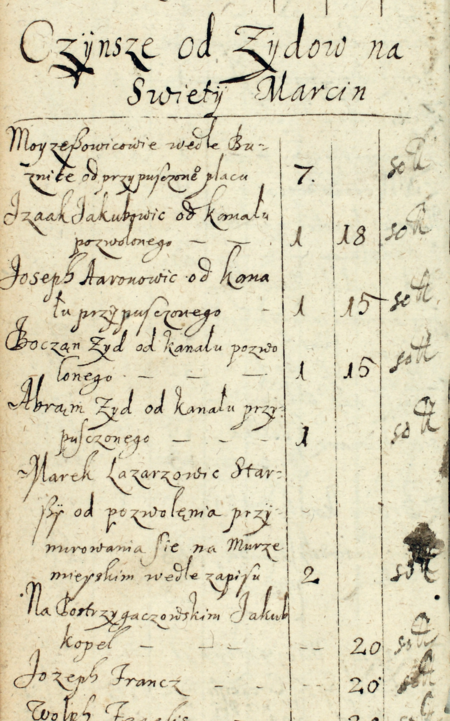 Czÿnsze od Zydow na
Swiety Marcin
Moyzeßowicowie wedle Bu-
znice od przypusczone placu 7. so
Izaak Jakubowic od kanału
pozwolonego — — 1 18 so
Joseph Aaronowic od kana
łu przypusczonego - 1 15 so
Boczan Zyd od kanału pozwo
lonego — — — 1 15 so
Abram Zyd od kanału przy-
pusczonego — — — 1 so
Marek Lazarzowic Star-
ßÿ od pozwolenia przy-
murowania sie na Murze
mieyskim wedle zapisu 2 so
Na Postrzygaczowskim Jakub
kopel — — — -- 20 so
Jozeph Francz — - -- 20 so
Wolph